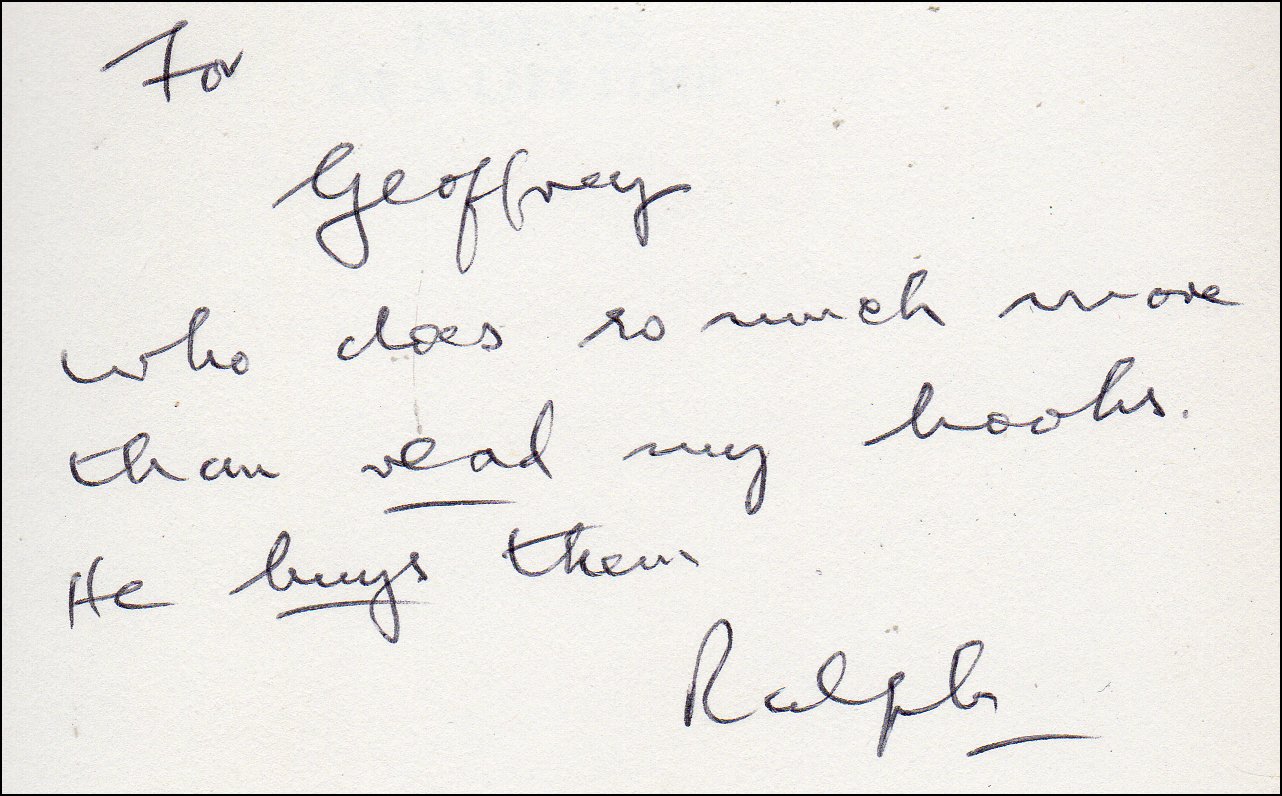 For
Geoffrey
who does so much more
than read my books.
He buys them
Ralph